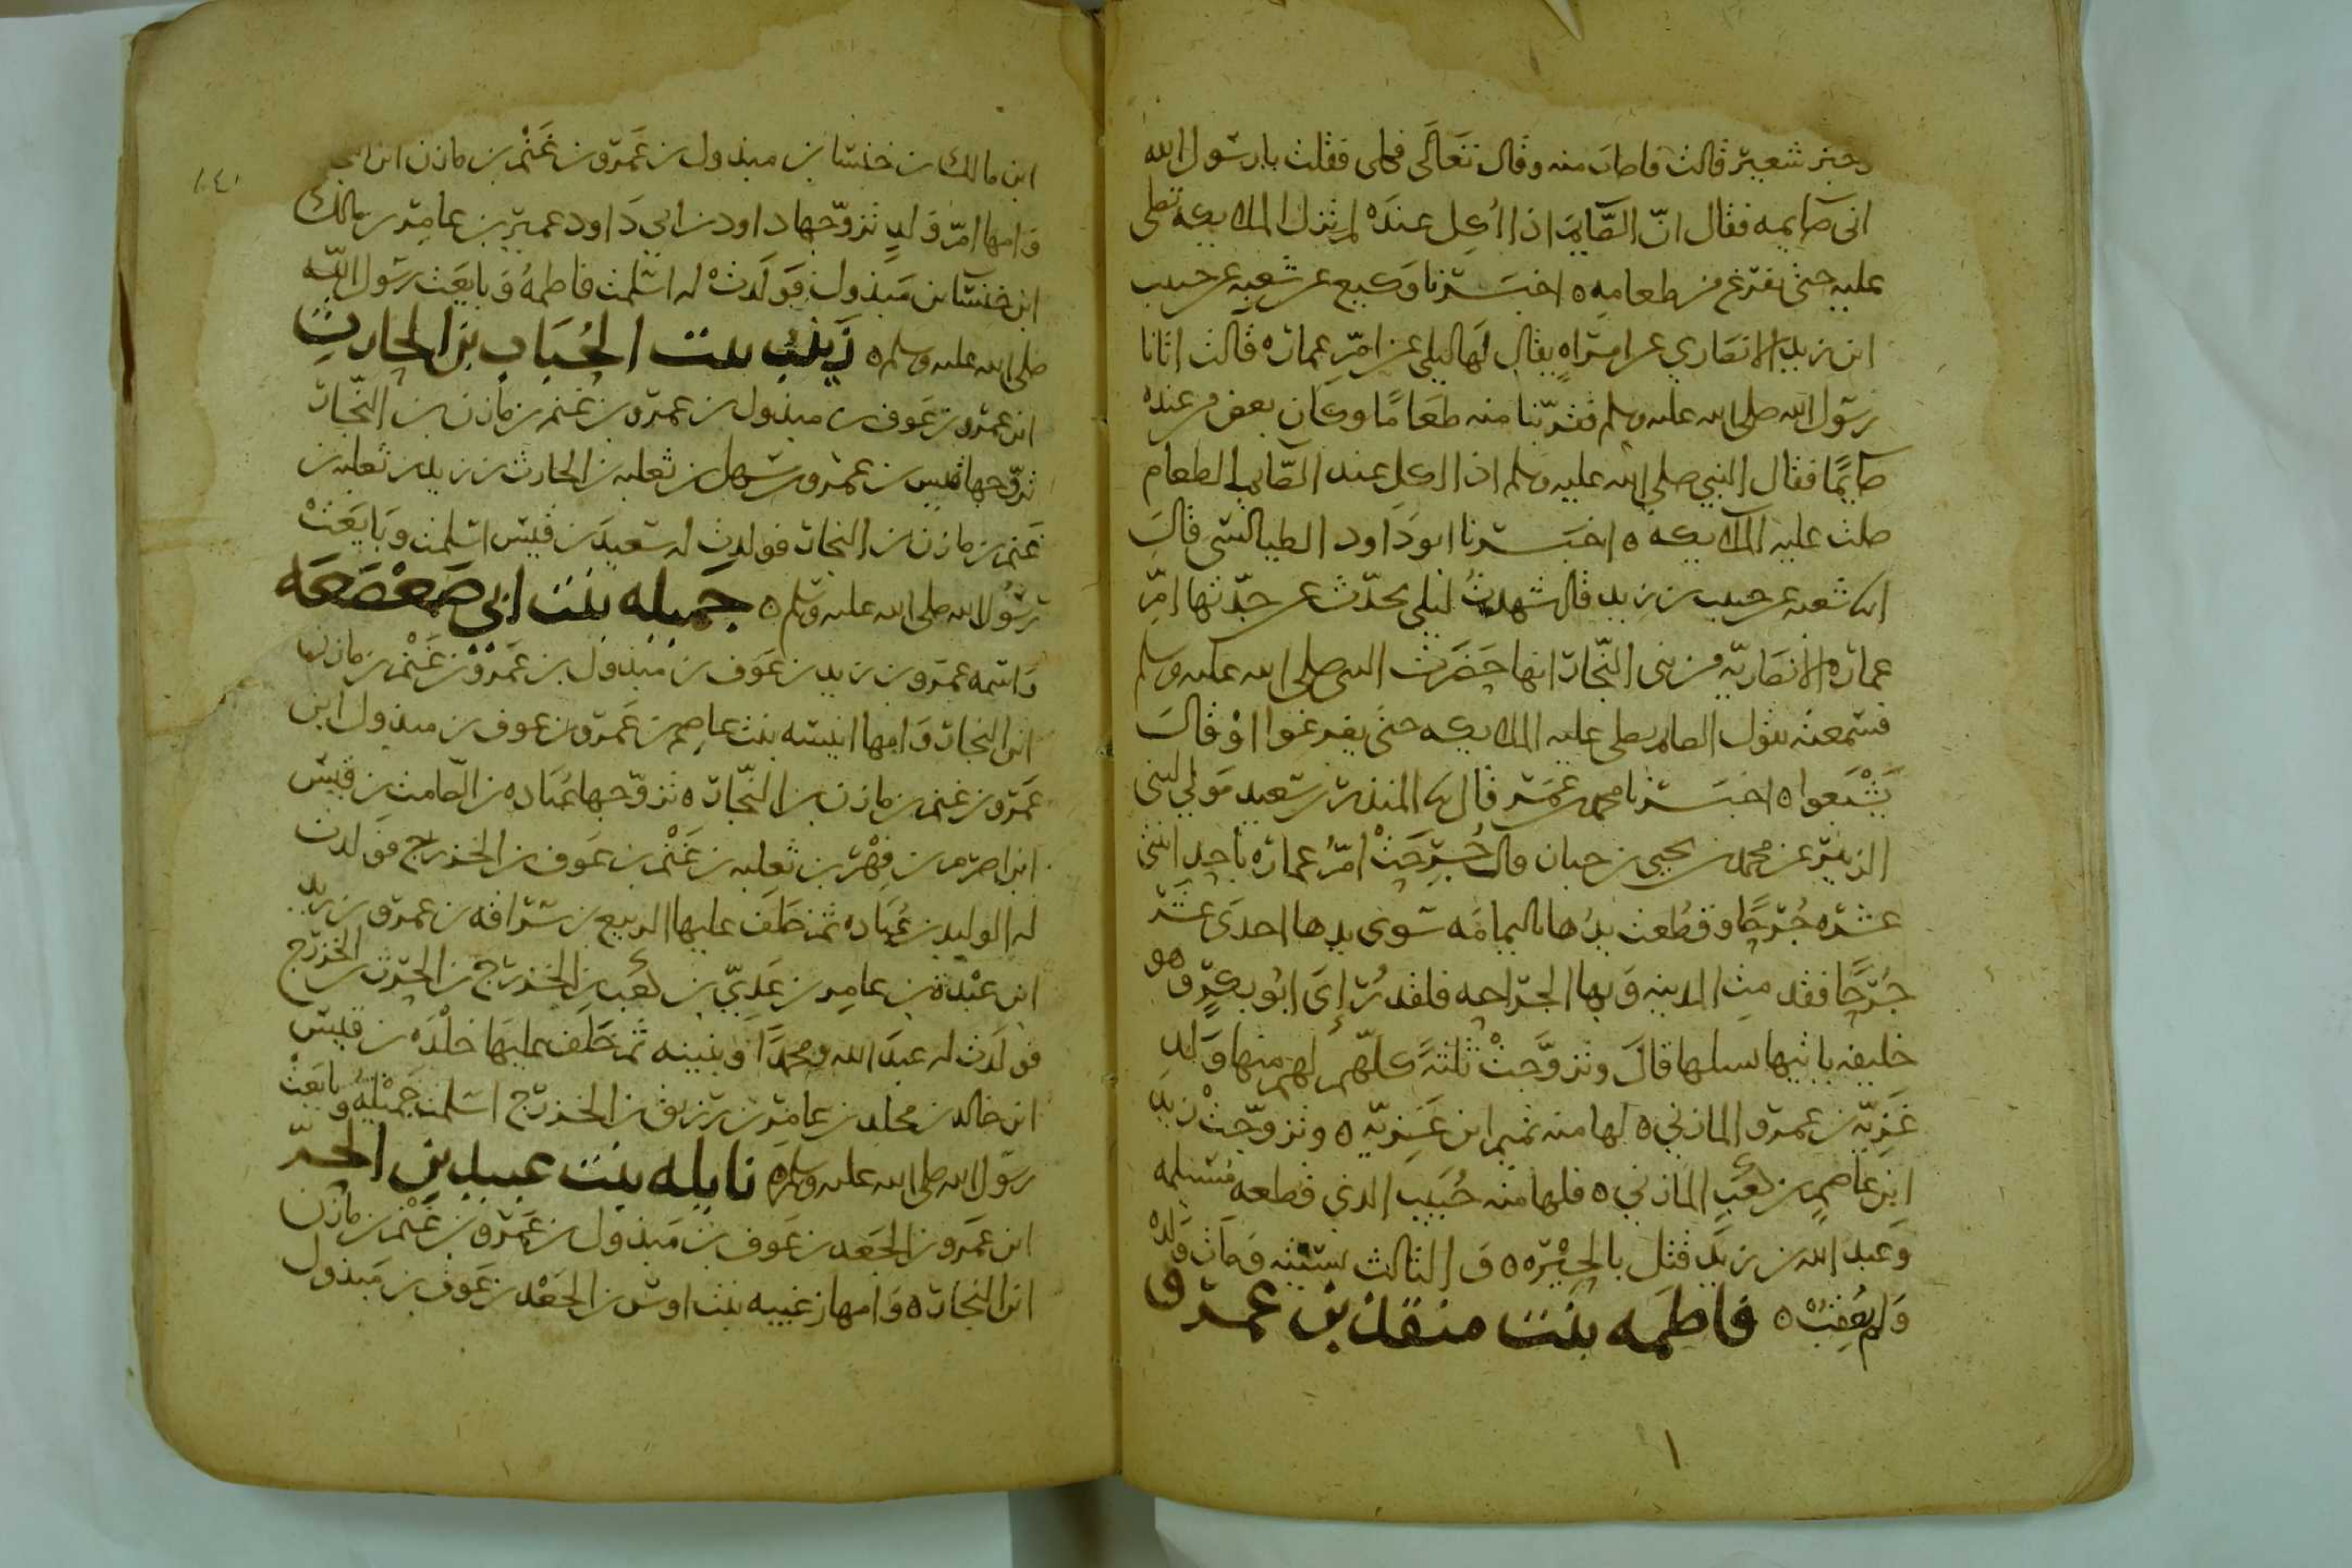 وخبز شعير قالت فاصاب منه وقال تعالى فكلى فقلت يا رسول الله
انى صايمه فقال انّ الصَّايم اذا اُكِل عنده لم تزل الملايكه تصلى
عليه حتى يفرغ من طعامِه ٥ اخبَــرنا وكيع عن شعبه عن حبيب
ابن زيد الانصاري عن امراهٍ يقال لها ليلى عن امّ عماره قالت اتانا
رسول الله صلى الله عليه وسلم فقرّبنا منه طعامًا وكان بعض من عنده
صايمًا فقال النبي صلى الله عليه وسلم اذا اكل عند الصّايم الطعام
صلت عليه الملايكه ٥ اخبَــرنا ابو داود الطيالسى قال
انا شعبه عن حبيب بن زيد قال سمعت ليلى تحدّث عن جدّتها امّ
عماره الانصاريّه من بنى النجّار انها حَضَرت النبى صلى الله عليه وسلم
فسمعته يقول الصايم يصلى عليه الملايكه حتى يفرغوا اوْ قال
يَشْبَعوا ٥ اخبــرنا محمد بن عُمَر قال نا المنذر بن سعيد مَولى لبنى
الزبير عن محمد بن يحيى بن حبان قال جُرِحَتْ امّ عماره باحد اثنى
عشره جُرحًا وقُطعت يدُها باليمامَه سوى يدها احدَى عَشَر
جُرحًا فقدمت المدينه وَبها الجراحه فلقد رُإِىَ ابُو بكرٍ وَهو
خليفه ياتيها يسلها قال وتزوَّجتْ ثلثهً كلّهم لهم منها وَلد
غَزِيّه بن عمرو المازني ٥ لها منه تميم ابن غَزِيّه ٥ وتزوّجتْ زيد
ابن عاصم بن كعبٍ المازني ٥ فلها منه حُبَيب الذى قطعه مُسَيلمه
وَعبد الله بن زيد قتل بالحَرّه ٥ وَ الثالث نسيته وَمات وَلده
وَلم يُعْقِبْ ٥ فاطمه بنت منقذ بن عمرو
١
١٤١
ابن مالك بن خنسا بن مبذول بن عَمرو بن غَنْم بن مازن ابن النجار
وَامها امّ وَلدٍ تزوّجها داود بن ابي دَاود عمير بن عامِر بن مالك
ابن خنسا بن مَبذول فوَلدتْ له اسلمت فاطمهُ وَبايعَت رسَول الله
صلى الله عليه وسلم ٥ زَينَب بنت الحُبَاب بن الحارِث
ابن عمرو بن عَوف بن مبذول بن عمرو بن غنم بن مازن بن النجّار
تزوّجها قيس بن عمرو بن سهل بن ثعلبه بن الحارث بن زيد بن ثعلبه بن
غنم بن مازن بن النجار فولدت له سَعيدَ بن قيس اسلمت وَبايَعَتْ
رسُول الله صلى الله عليه وسلم ٥ جَميله بنت ابى صَعْصَعَه
وَاسمه عمرو بن زيد بن عَوف بن مبذول بن عَمْرو بن غَنْم بن مازن
ابن النجار وَامها انيسَه بنت عاصِم بن عَمرو بن عوف بن مبذول ابن
عَمرو بن غنم بن مازن بن النجّار ٥ تزوّجها عُبَاده بن الصّامت بن قيس
ابن اصرم بن فِهْر بن ثعلبه بن غَنْم بن عَوف بن الخزرج فوَلدت
له الوليد بن عُبَاده ثم خَلَف عليها الربيع بن سُراقه بن عمرو بن زيد
ابن عبْدة بن عامِر بن عَدِيّ بن كعْب بن الخزرج بن الحرث بن الخزرج
فولَدت له عبدَ الله وَمحمدًا وَ بثينه ثم خَلف عليها خلْدَه بن قيس
ابن خالد بن مخلد بن عامِر بن زريق بن الخزرج اسلمت جَميْلهُ وبايَعَتْ
رسوْل الله صلى الله عليه وسلم ٥ نايله بنت عبيد بن الحرّ
ابن عَمرو بن الجَعد بن عَوف بن مَبذول بن عَمرو بن غَنْم بن مازن
ابن النجار ٥ وَامها زغيبه بنت اوس بن الجَعْد بن عَوف بن مَبذول